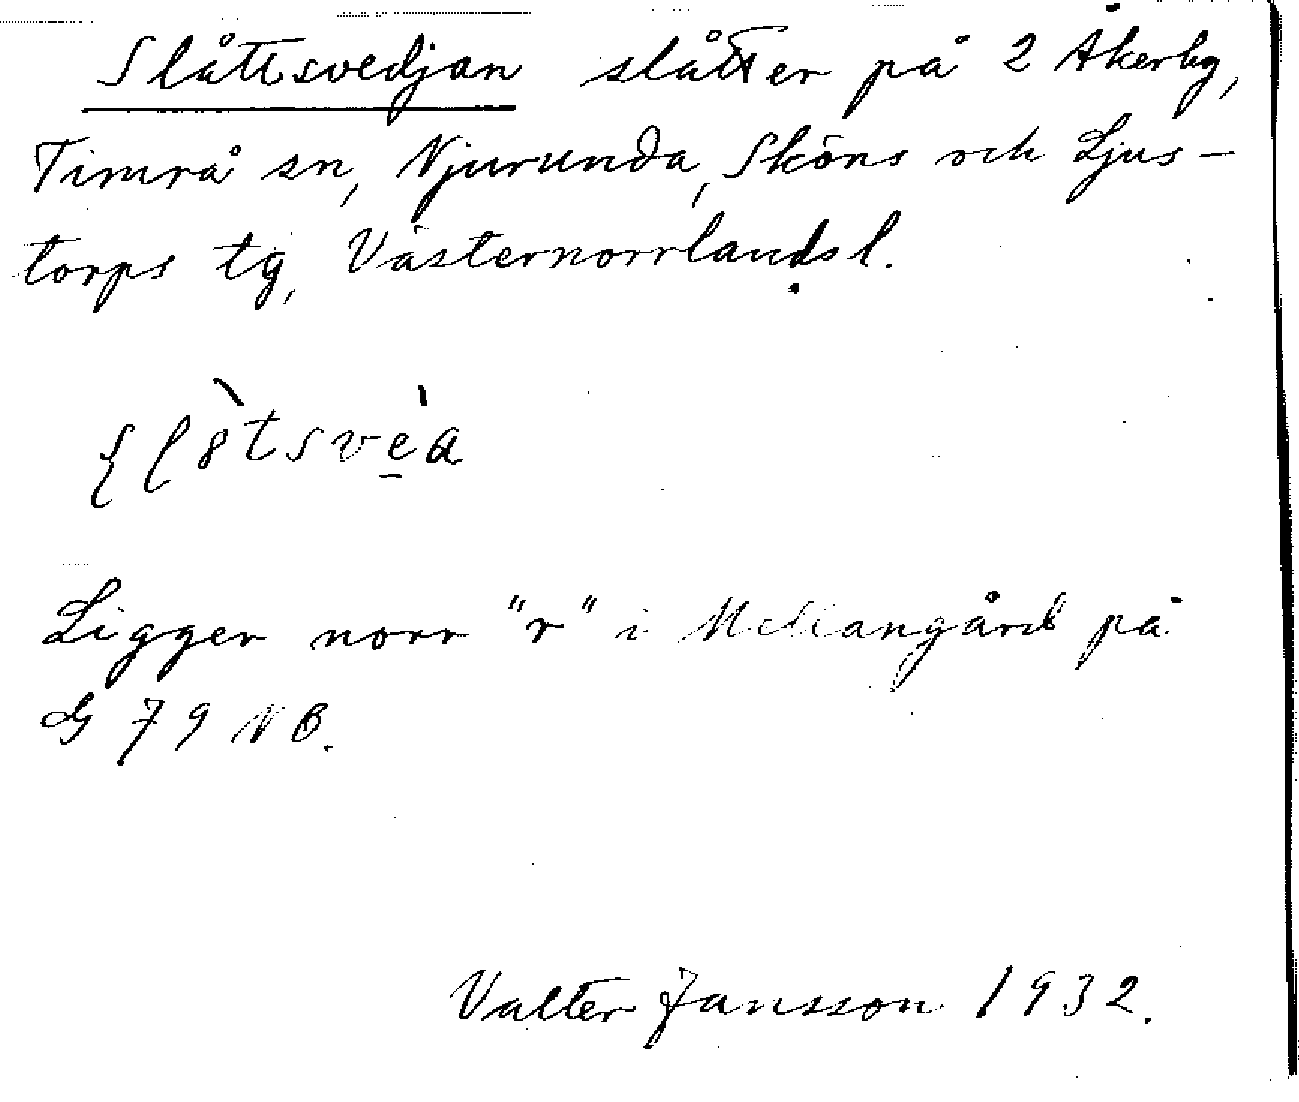 Slåttsvedjan slåtter på 2 Åkerby,
Timrå sn, Njurunda, Sköns och Ljus-
torps tg, Västernorrlands l.
Ligger norr "r" i Mellangård på
G 79 NB.
Valter Jansson 1932.